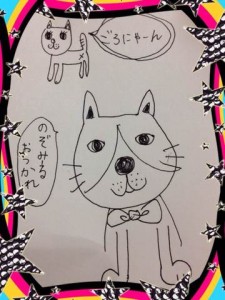 ごろにゃーん
のぞみる
おつかれ